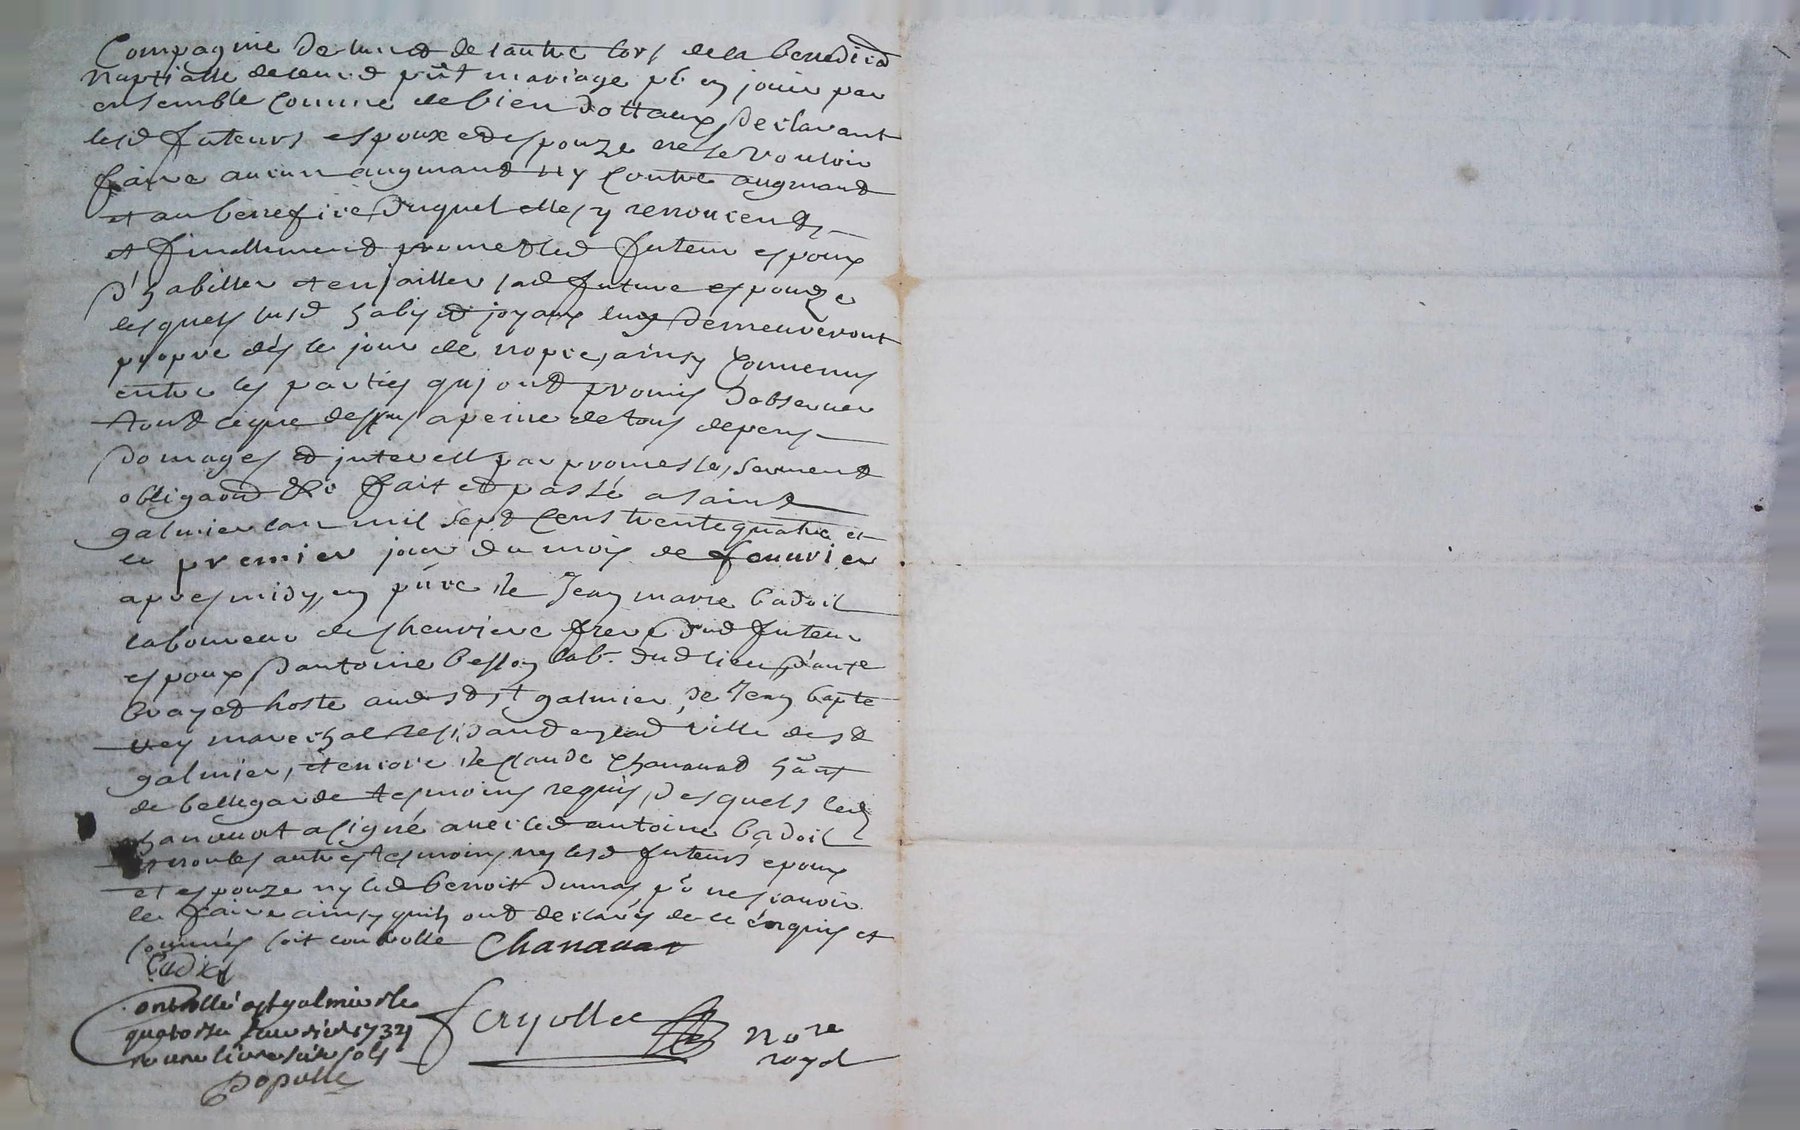 Compagnie de lun et de lautre lors de la benedion
nuptialle de leur d pnt mariage pr en jouir par
ensemble comme de bien dottaux, declarant
lesd futeurs espoux et espouze ne se vouloir
faire aucun augmand ny contre augmand
et au beneffice duquel elles y renoncend,
et finallemend promet led futeur espoux
d'habiller et enjailler lad future espouze
lesquels susd habits et joyaux luy demeureront
propre dés le jour de nopce, ainsy convenus
entre les parties quj ont promis d'observer
tout ceque dessus a peine de tous depens
domages et jnterest par promesse, sermend
obligaond &c fait et passé a saint
galmier lan mil sept cens trente quatre et
le premier jour du mois de feuvrier
apres midy, en pnce de Jean marie badoil
laboureur de cheuriere frere dud futeur
espoux d'antoine besson lab.r dud lieu, d'anxe
brayet hoste aud st galmier, de Jean bapte
rey marechal residant en lad ville de st
galmier, et encore de claude chanavat hant
de bellegarde tesmoins requis, desquels led
chanavat a signé avec led antoine badoil
et non les autres tesmoins ny lesd futeurs epoux
et espouze ny led benoit dumas pr ne scavoir
le faire ainsy quils ont declarés de ce enquis et
sommés soit controlle Chanavat
Controllé a st galmier le
quatorze feuvrier 1734
une livre six sols
Populle
ferjolle nore
royal